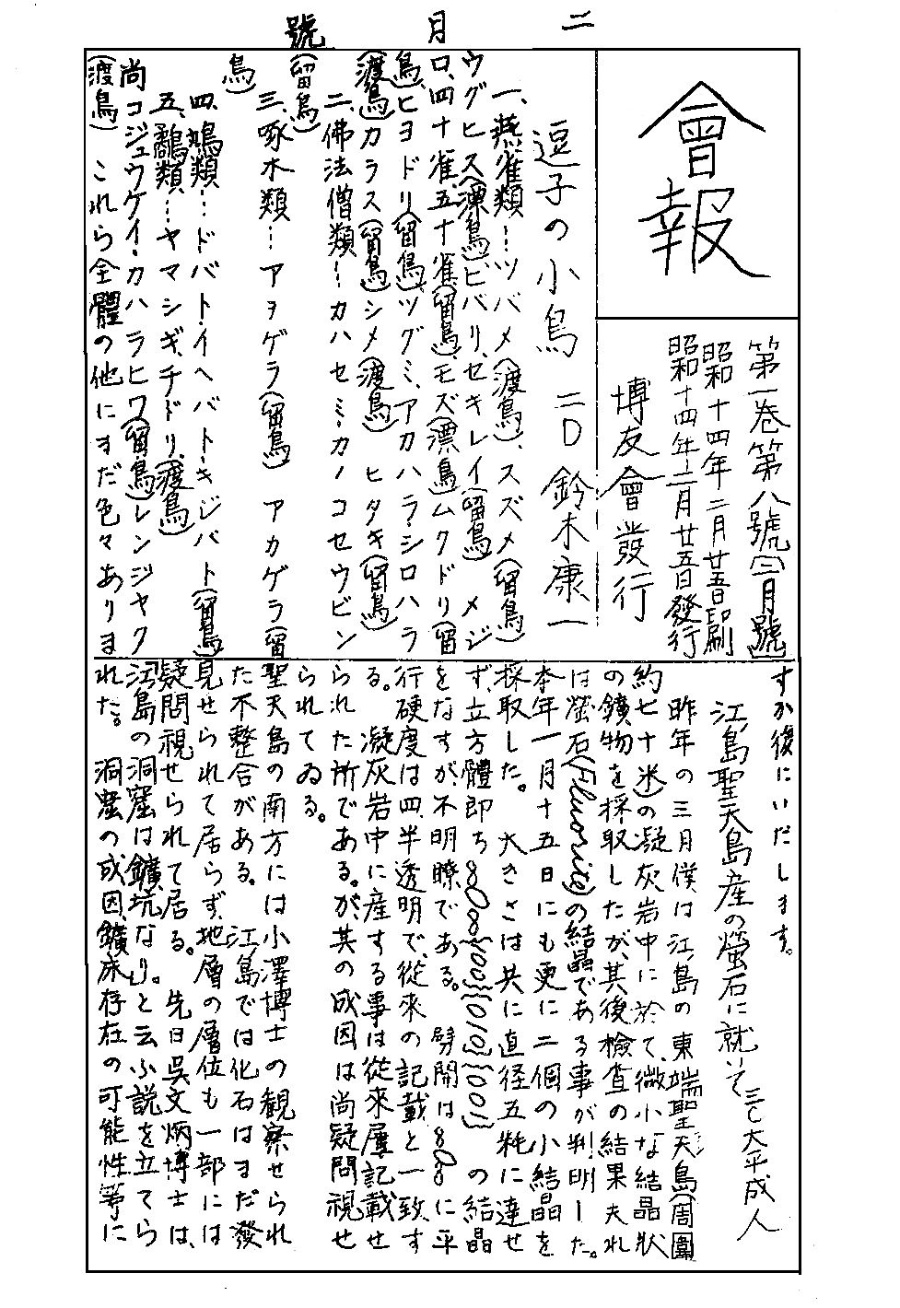 二月號
會報
第一巻第八號(二月號)
昭和十四年二月廿五日印刷
昭和十四年二月廿五日發行
博友會發行
逗子の小鳥 二D 鈴木康一
一、燕雀類…ツバメ(渡鳥)、スズメ(留鳥)
ウグヒス(漂鳥)、ヒバリ、セキレイ(留鳥) メジ
ロ、四十雀、五十雀(留鳥)、モズ(漂鳥)ムクドリ(留
鳥)、ヒヨドリ(留鳥)ツグミ、アカハラ・シロハラ
(渡鳥)カラス(留鳥)シメ(渡鳥) ヒタキ(留鳥)
二、佛法僧類…カハセミ・カノコセウビン
(留鳥)
三、啄木類…アヲゲラ(留鳥) アカゲラ(留
鳥)
四、鳩類…ドバト・イヘバト・キジバト(留鳥)
五、鷸類…ヤマシギ、チドリ(渡鳥)
尚コジュウケイ・カハラヒワ(留鳥)レンジャク
(渡鳥) これら全體の他にまだ色々ありま
すが後にいたします。
江島聖天島産の螢石に就いて 三C 大平成人
昨年の三月僕は江島の東端聖天島(周圍
約七十米)の凝灰岩中に於て、微小な結晶狀
の鑛物を採取したが、其後檢査の結果夫れ
は螢石(Fluorite)の結晶である事が判明した。
本年一月十五日にも更に二個の小結晶を
採取した。 大きさは共に直径五粍に達せ
ず、立方體即ち {100}{010}{001} の結晶
をなすが、不明瞭である。 劈開は に平
行硬度は四、半透明で、從來の記載と一致す
る。 凝灰岩中に産する事は從來屢記載せ
られた所である。が、其の成因は尚疑問視せ
られてゐる。
聖天島の南方には小澤博士の観察せられ
た不整合がある。 江島では化石はまだ發
見せられて居らず、地層の層位も一部には
疑問視せられて居る。 先日呉文炳博士は、
江島の洞窟は鑛坑なり。と云ふ說を立てら
れた。 洞窟の成因、鑛床存在の可能性等に